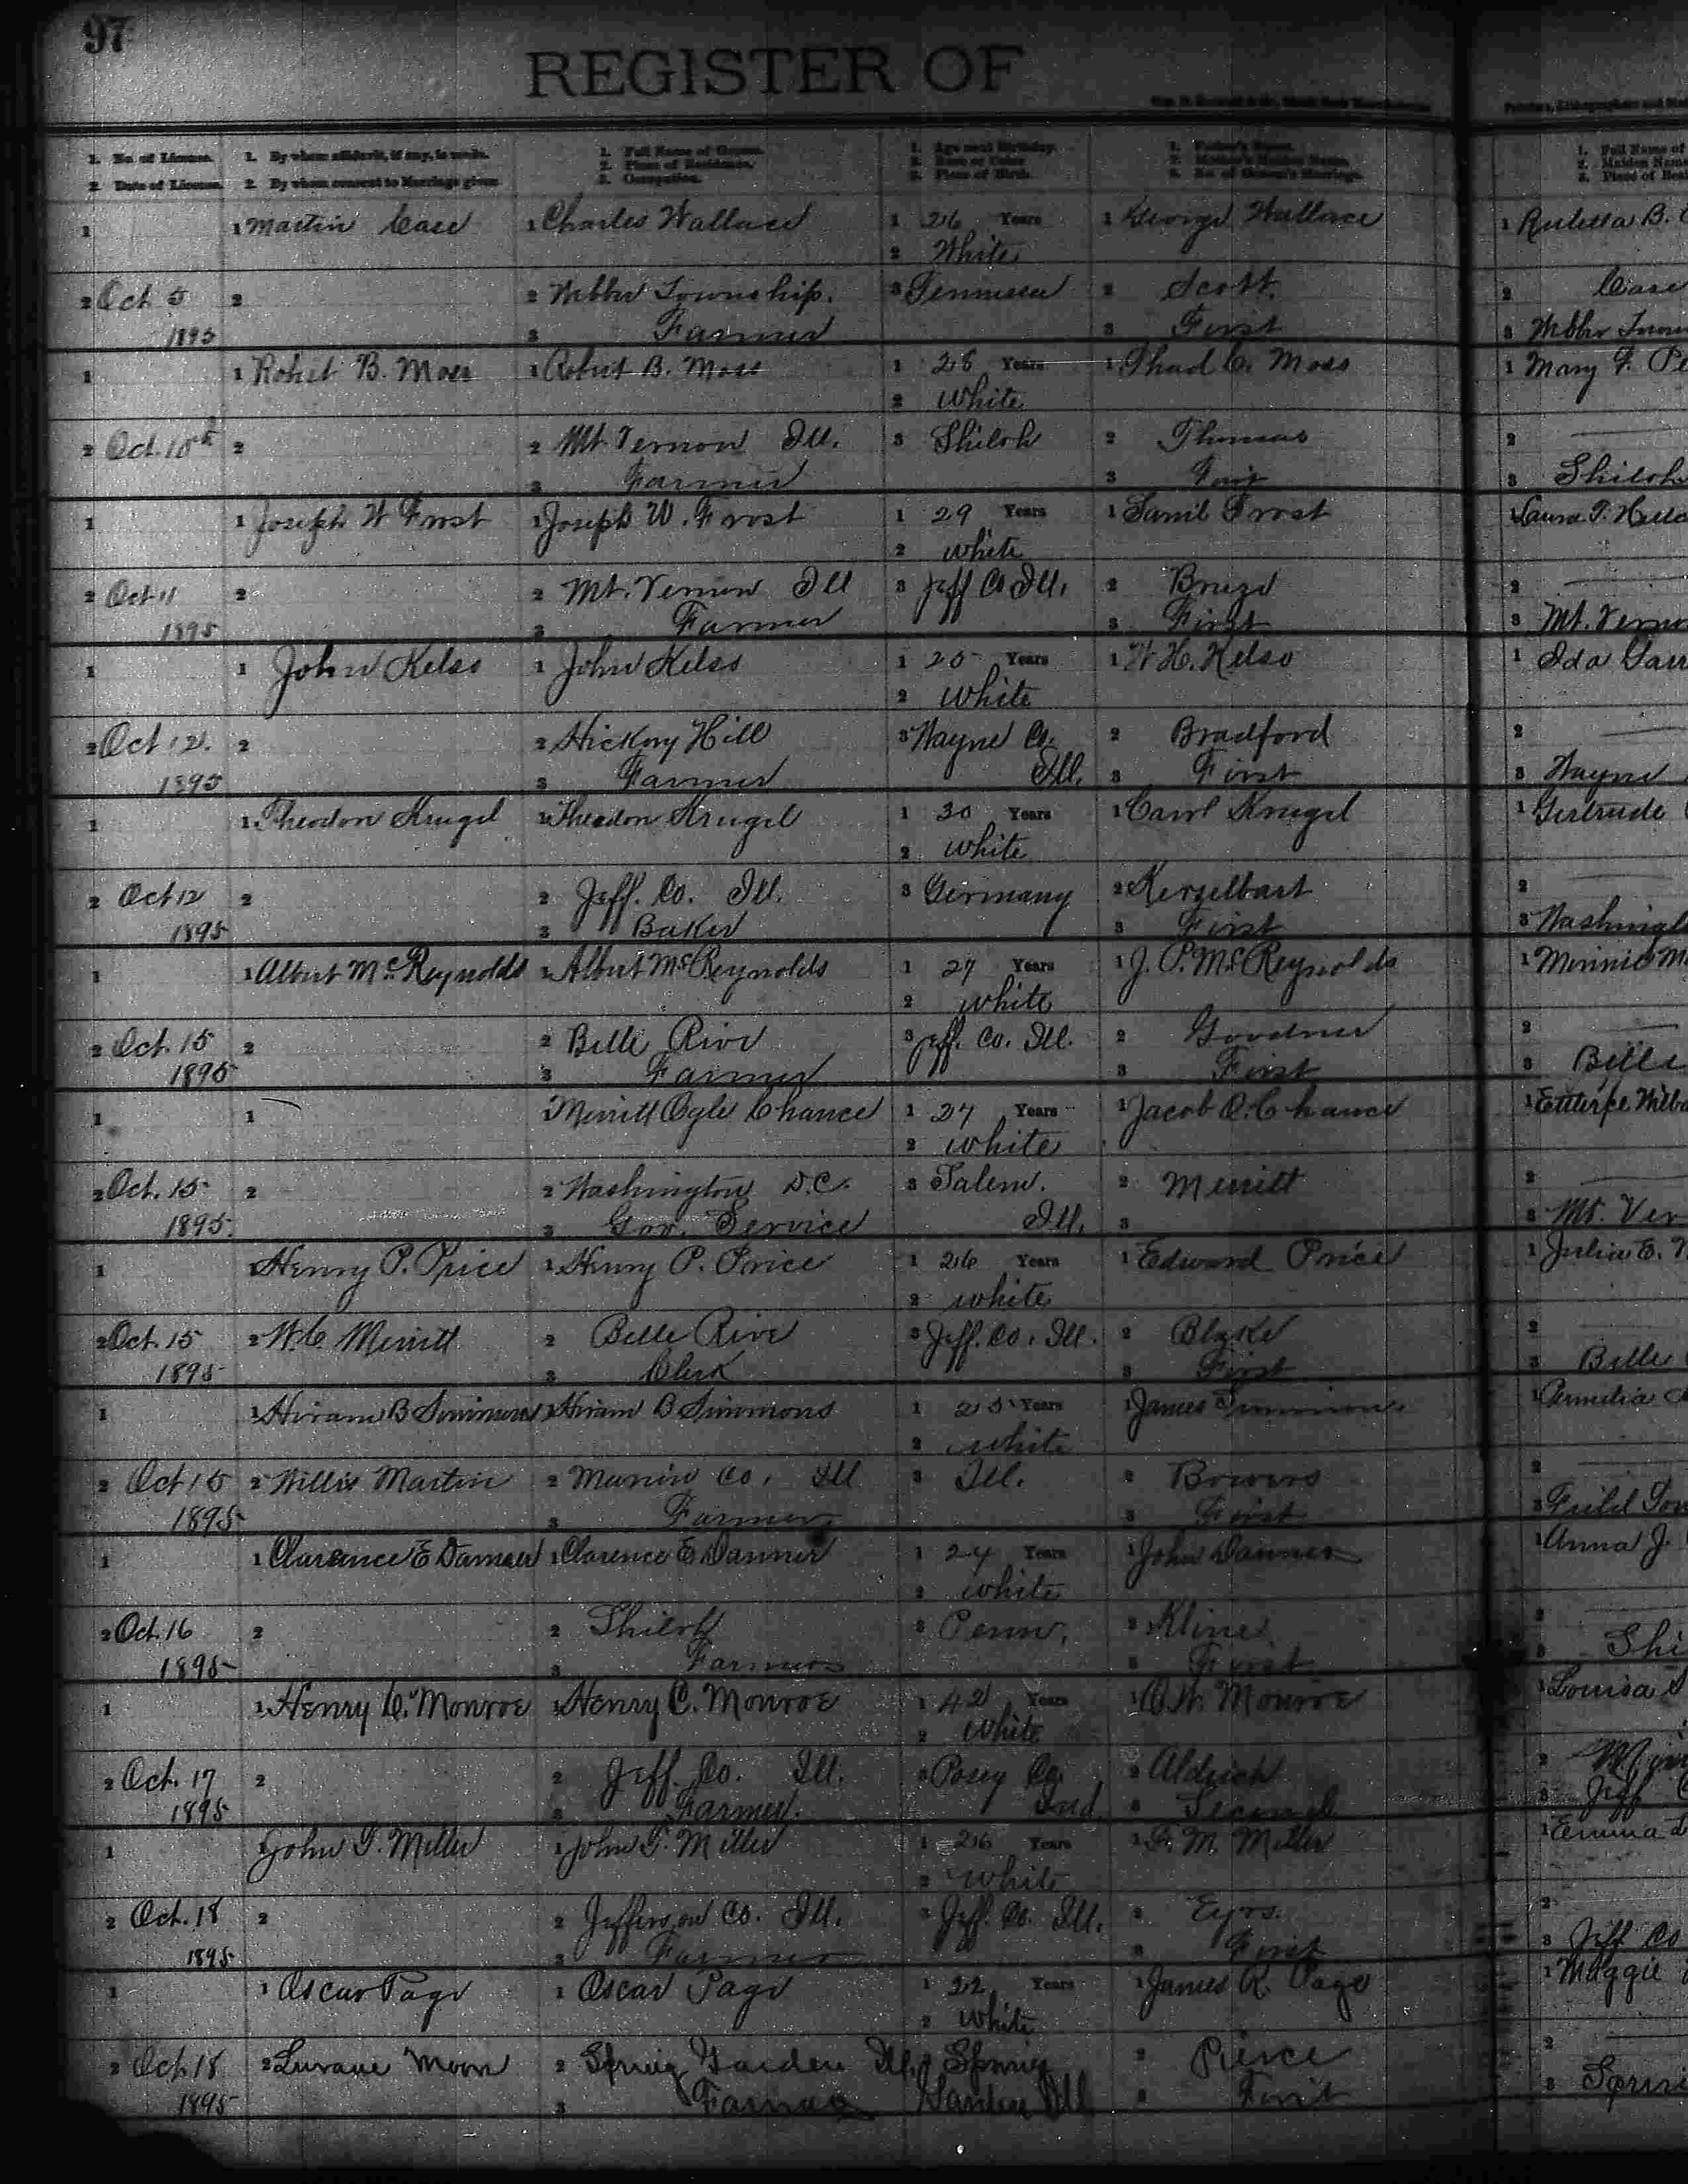 97
REGISTER OF
1. No. of License.
2. Date of License.
1. By whom affidavit, if any, is made.
2. By whom consent to Marriage given
1. Full Name of Groom.
2. Place of Residence.
3. Occupation.
1. Age next Birthday.
2. Race or Color
3. Place of Birth.
1. Father's Name.
2. Mother's Maiden Name.
3. No. of Groom's Marriage.
1. Full Name of
2. Maiden Name
3. Place of Resi
1 1 Martin Case 1 Charles Wallace 1 26 Years 1 George Wallace 1 Ruletta B.
2 White
2 Oct 5 2 2 Webber Township. 3 Tennessee 2 Scott. 2 Case
1895 3 Farmer 3 First 3 Webber Town
1 1 Robert B. Moss 1 Robert B. Moss 1 28 Years 1 Thad C. Moss 1 Mary F. Pe
2 White
2 Oct. 10th 2 2 Mt Vernon Ill. 3 Shiloh 2 Thomas 2
3 Farmer 3 First 3 Shiloh
1 1 Joseph W Frost 1 Joseph W. Frost 1 29 Years 1 Saml Frost 1 Laura T.
2 white
2 Oct 11 2 2 Mt. Vernon Ill 3 Jeff Co Ill. 2 2
1895 3 Farmer 3 First 3 Mt. Verno
1 1 John Kelso 1 John Kelso 1 25 Years 1 W. H. Kelso 1 Ida Garr
2 white
2 Oct 12. 2 2 Hickory Hill 3 Wayne Co. 2 Bradford 2
1895 3 Farmer Ill. 3 First 3 Wayne
1 1 Theodor Krugel 1 Theodor Krugel 1 30 Years 1 Carol Krugel 1 Gertrude
2 white
2 Oct 12 2 2 Jeff. Co. Ill. 3 Germany 2 Kerzelbart 2
1895 3 Baker 3 First 3 Washingt
1 1 Albert McReynolds 1 Albert McReynolds 1 27 Years 1 J. P. McReynolds 1 Minnie M
2 white
2 Oct. 15 2 2 Belle Rive 3 Jeff. Co. Ill. 2 Goodner 2
1895 3 Farmer 3 First 3 Belle
1 1 1 Merritt Ogle Chance 1 27 Years 1 Jacob O. Chance 1 Wilba
2 white
2 Oct. 15 2 2 Washington D.C. 3 Salem. 2 Merritt 2
1895. 3 Gov. Service Ill. 3 3 Mt. Ver
1 1 Henry P. Price 1 Henry P. Price 1 26 Years 1 Edward Price 1 Julia E.
2 white
2 Oct. 15 2 W. C. Merritt 2 Belle Rive 3 Jeff. Co. Ill. 2 Blake 2
1895 3 Clerk 3 First 3 Belle
1 1 Hiram B Simmons 1 Hiram B Simmons 1 25 Years 1 James Simmons 1 Permelia
2 white
2 Oct 15 2 Willis Martin 2 Marion Co. Ill 3 Ill. 2 Bowers 2
1895 3 Farmer. 3 First 3 Field Tow
1 1 Clarence E Danner 1 Clarence E Danner 1 24 Years 1 John Danner 1 Anna J.
2 white
2 Oct. 16 2 2 Shiloh 3 Penn. 2 Kline 2
1895 3 Farmer 3 First 3 Shi
1 1 Henry C. Monroe 1 Henry C. Monroe 1 42 Years 1 O. W. Monroe 1 Louisa
2 White
2 Oct. 17 2 2 Jeff. Co. Ill. 3 Posey Co. 2 Aldrich 2
1895 3 Farmer. Ind. 3 Second 3 Jeff C
1 1 John T. Miller 1 John T. Miller 1 26 Years 1 F. M. Miller 1 Emma
2 white
2 Oct. 18 2 2 Jefferson Co. Ill. 3 Jeff. Co. Ill. 2 2
1895 3 Farmer 3 First 3 Jeff Co
1 1 Oscar Page 1 Oscar Page 1 22 Years 1 James R. Page 1 Maggie
2 white
2 Oct. 18 2 Moon 2 Spring Garden Ill. 3 Spring 2 Pierce 2
1895 3 Farmer Garden Ill 3 First 3 Sprin